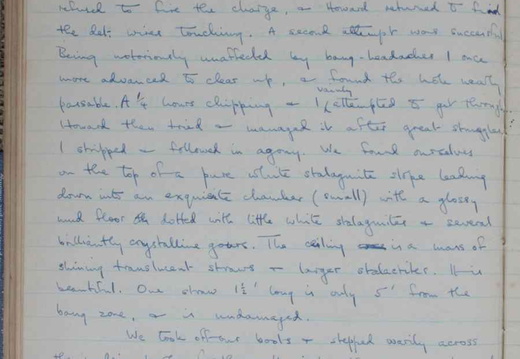 refused to fire the charge, & Howard returned to find
the det. wires touching. A second attempt was successful
Being notoriously unaffected by bang-headaches I once
more advanced to clear up, & found the hole nearly
passable. A ¼ hours chipping & I vainly attempted to get through.
Howard then tried & managed it after great struggles
I stripped & followed in agony. We found ourselves
on the top of a pure white stalagmite slope leading
down into an exquisite chamber (small) with a glossy
mud floor dotted with little white stalagmites & several
brilliantly crystalline gours. The ceiling is a mass of
shining translucent straws & larger stalactites. It is
beautiful. One straw 1½' long is only 5' from the
bang zone, & is undamaged.
We took off our boots & stepped warily across